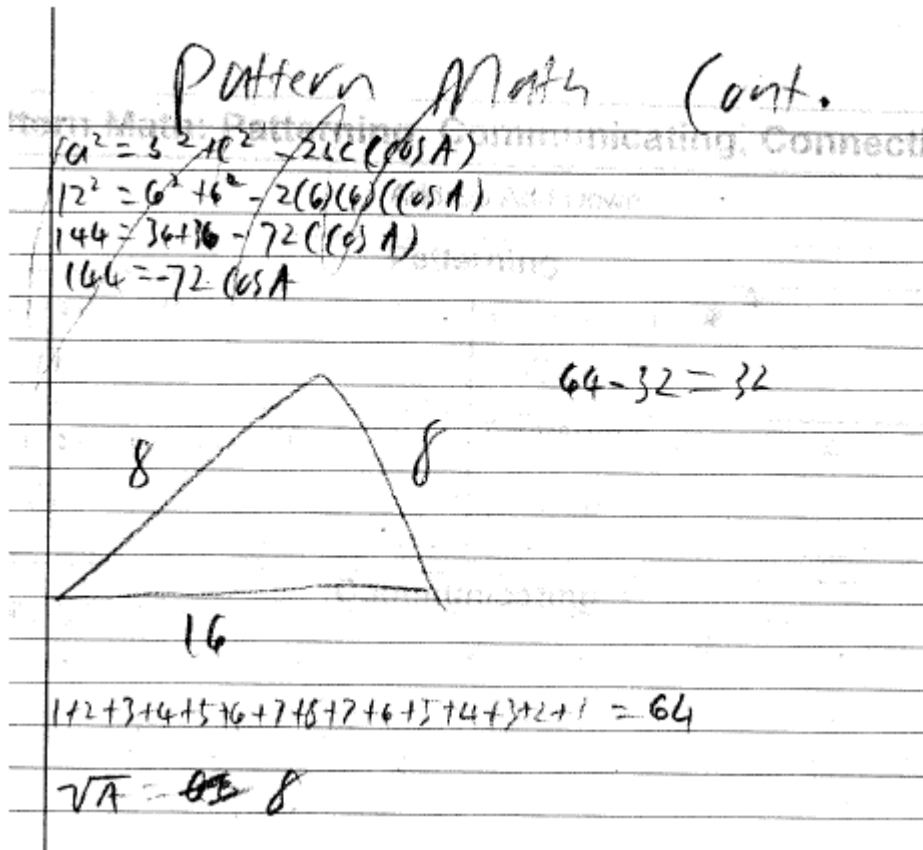 Pattern Math Cont.
a² = b² + c² - 2bc (cos A)
12² = 6² + 6² - 2(6)(6)(cos A)
144 = 36+36 - 72 (cos A)
144 = -72 cos A
64 - 32 = 32
8
8
16
1+2+3+4+5+6+7+8+7+6+5+4+3+2+1 = 64
√A = 8